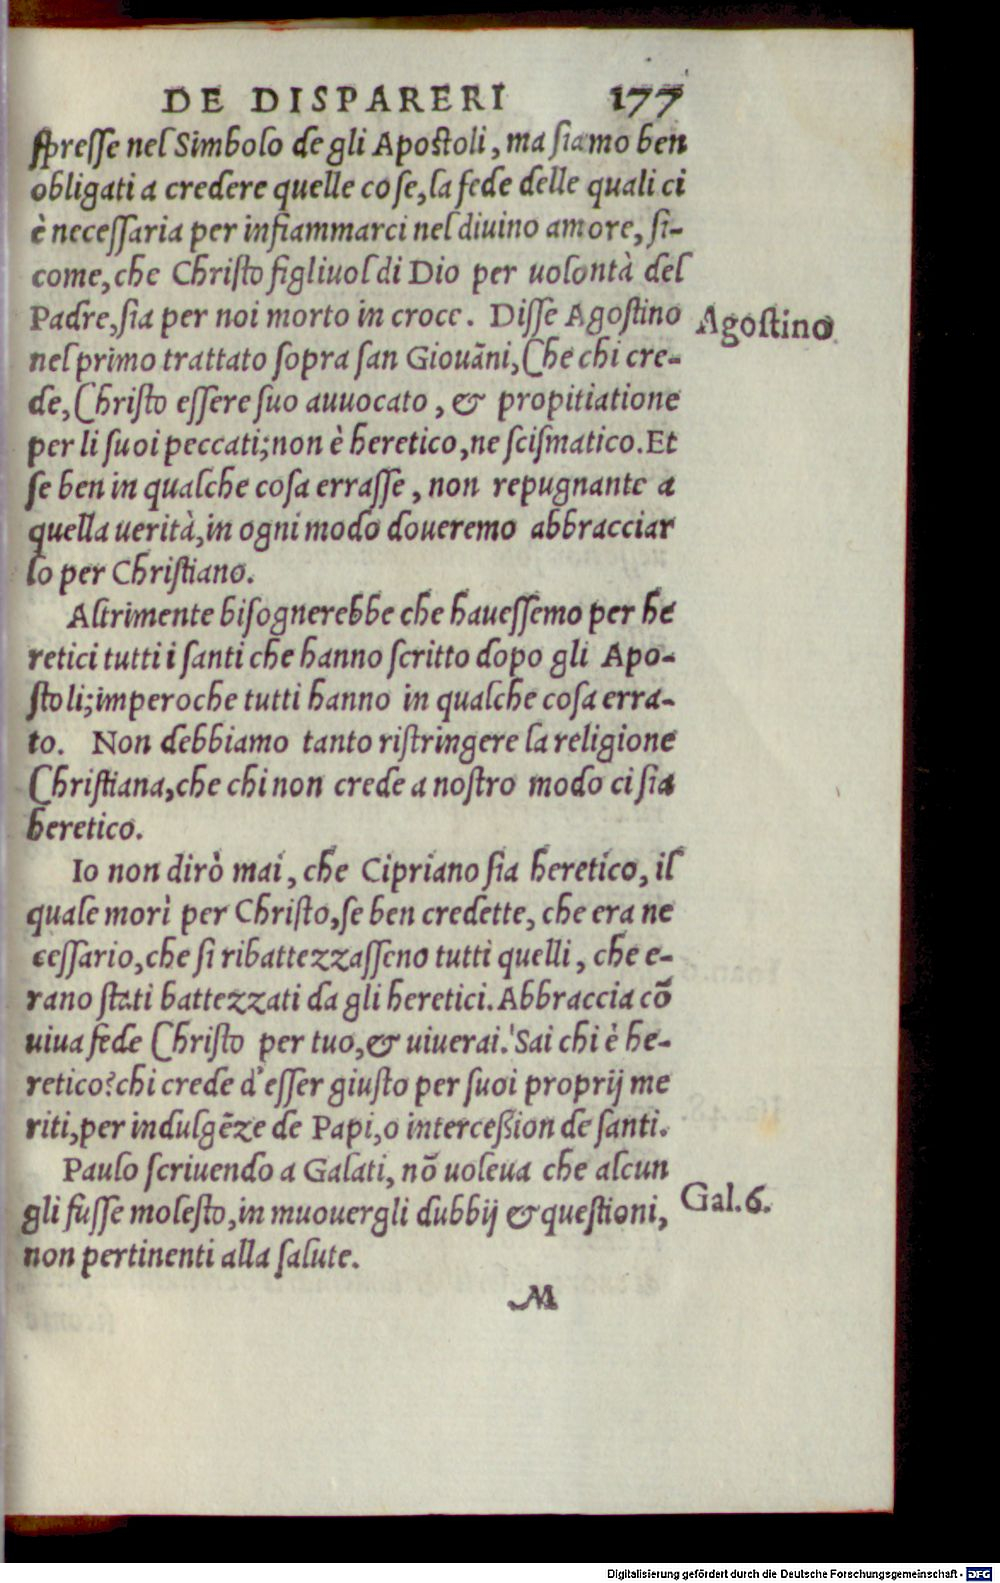 DE DISPARERI 177
ſpreſſe nel Simbolo de gli Apoſtoli, ma ſiamo ben
obligati a credere quelle coſe, la fede delle quali ci
è neceſſaria per infiammarci nel diuino amore, ſi-
come, che Chriſto figliuol di Dio per uolontà del
Padre, ſia per noi morto in croce. Diſſe Agoſtino
Agoſtino
nel primo trattato ſopra ſan Giouāni, Che chi cre-
de, Chriſto eſſere ſuo auuocato, & propitiatione
per li ſuoi peccati; non è heretico, ne ſciſmatico. Et
ſe ben in qualche coſa erraſſe, non repugnante a
quella uerità, in ogni modo doueremo abbracciar
lo per Chriſtiano.
Altrimente biſognerebbe che haueſſemo per he
retici tutti i ſanti che hanno ſcritto dopo gli Apo-
ſtoli; imperoche tutti hanno in qualche coſa erra-
to. Non debbiamo tanto riſtringere la religione
Chriſtiana, che chi non crede a noſtro modo ci ſia
heretico.
Io non dirò mai, che Cipriano ſia heretico, il
quale morì per Chriſto, ſe ben credette, che era ne
ceſſario, che ſi ribattezzaſſeno tutti quelli, che e-
rano ſtati battezzati da gli heretici. Abbraccia cō
uiua fede Chriſto per tuo, & uiuerai. Sai chi è he-
retico? chi crede d'eſſer giuſto per ſuoi proprij me
riti, per indulgēze de Papi, o interceßion de ſanti.
Paulo ſcriuendo a Galati, nō uoleua che alcun
gli fuſſe moleſto, in muouergli dubbij & queſtioni,
Gal. 6.
non pertinenti alla ſalute.
M
Digitalisierung gefördert durch die Deutsche Forschungsgemeinschaft - DFG